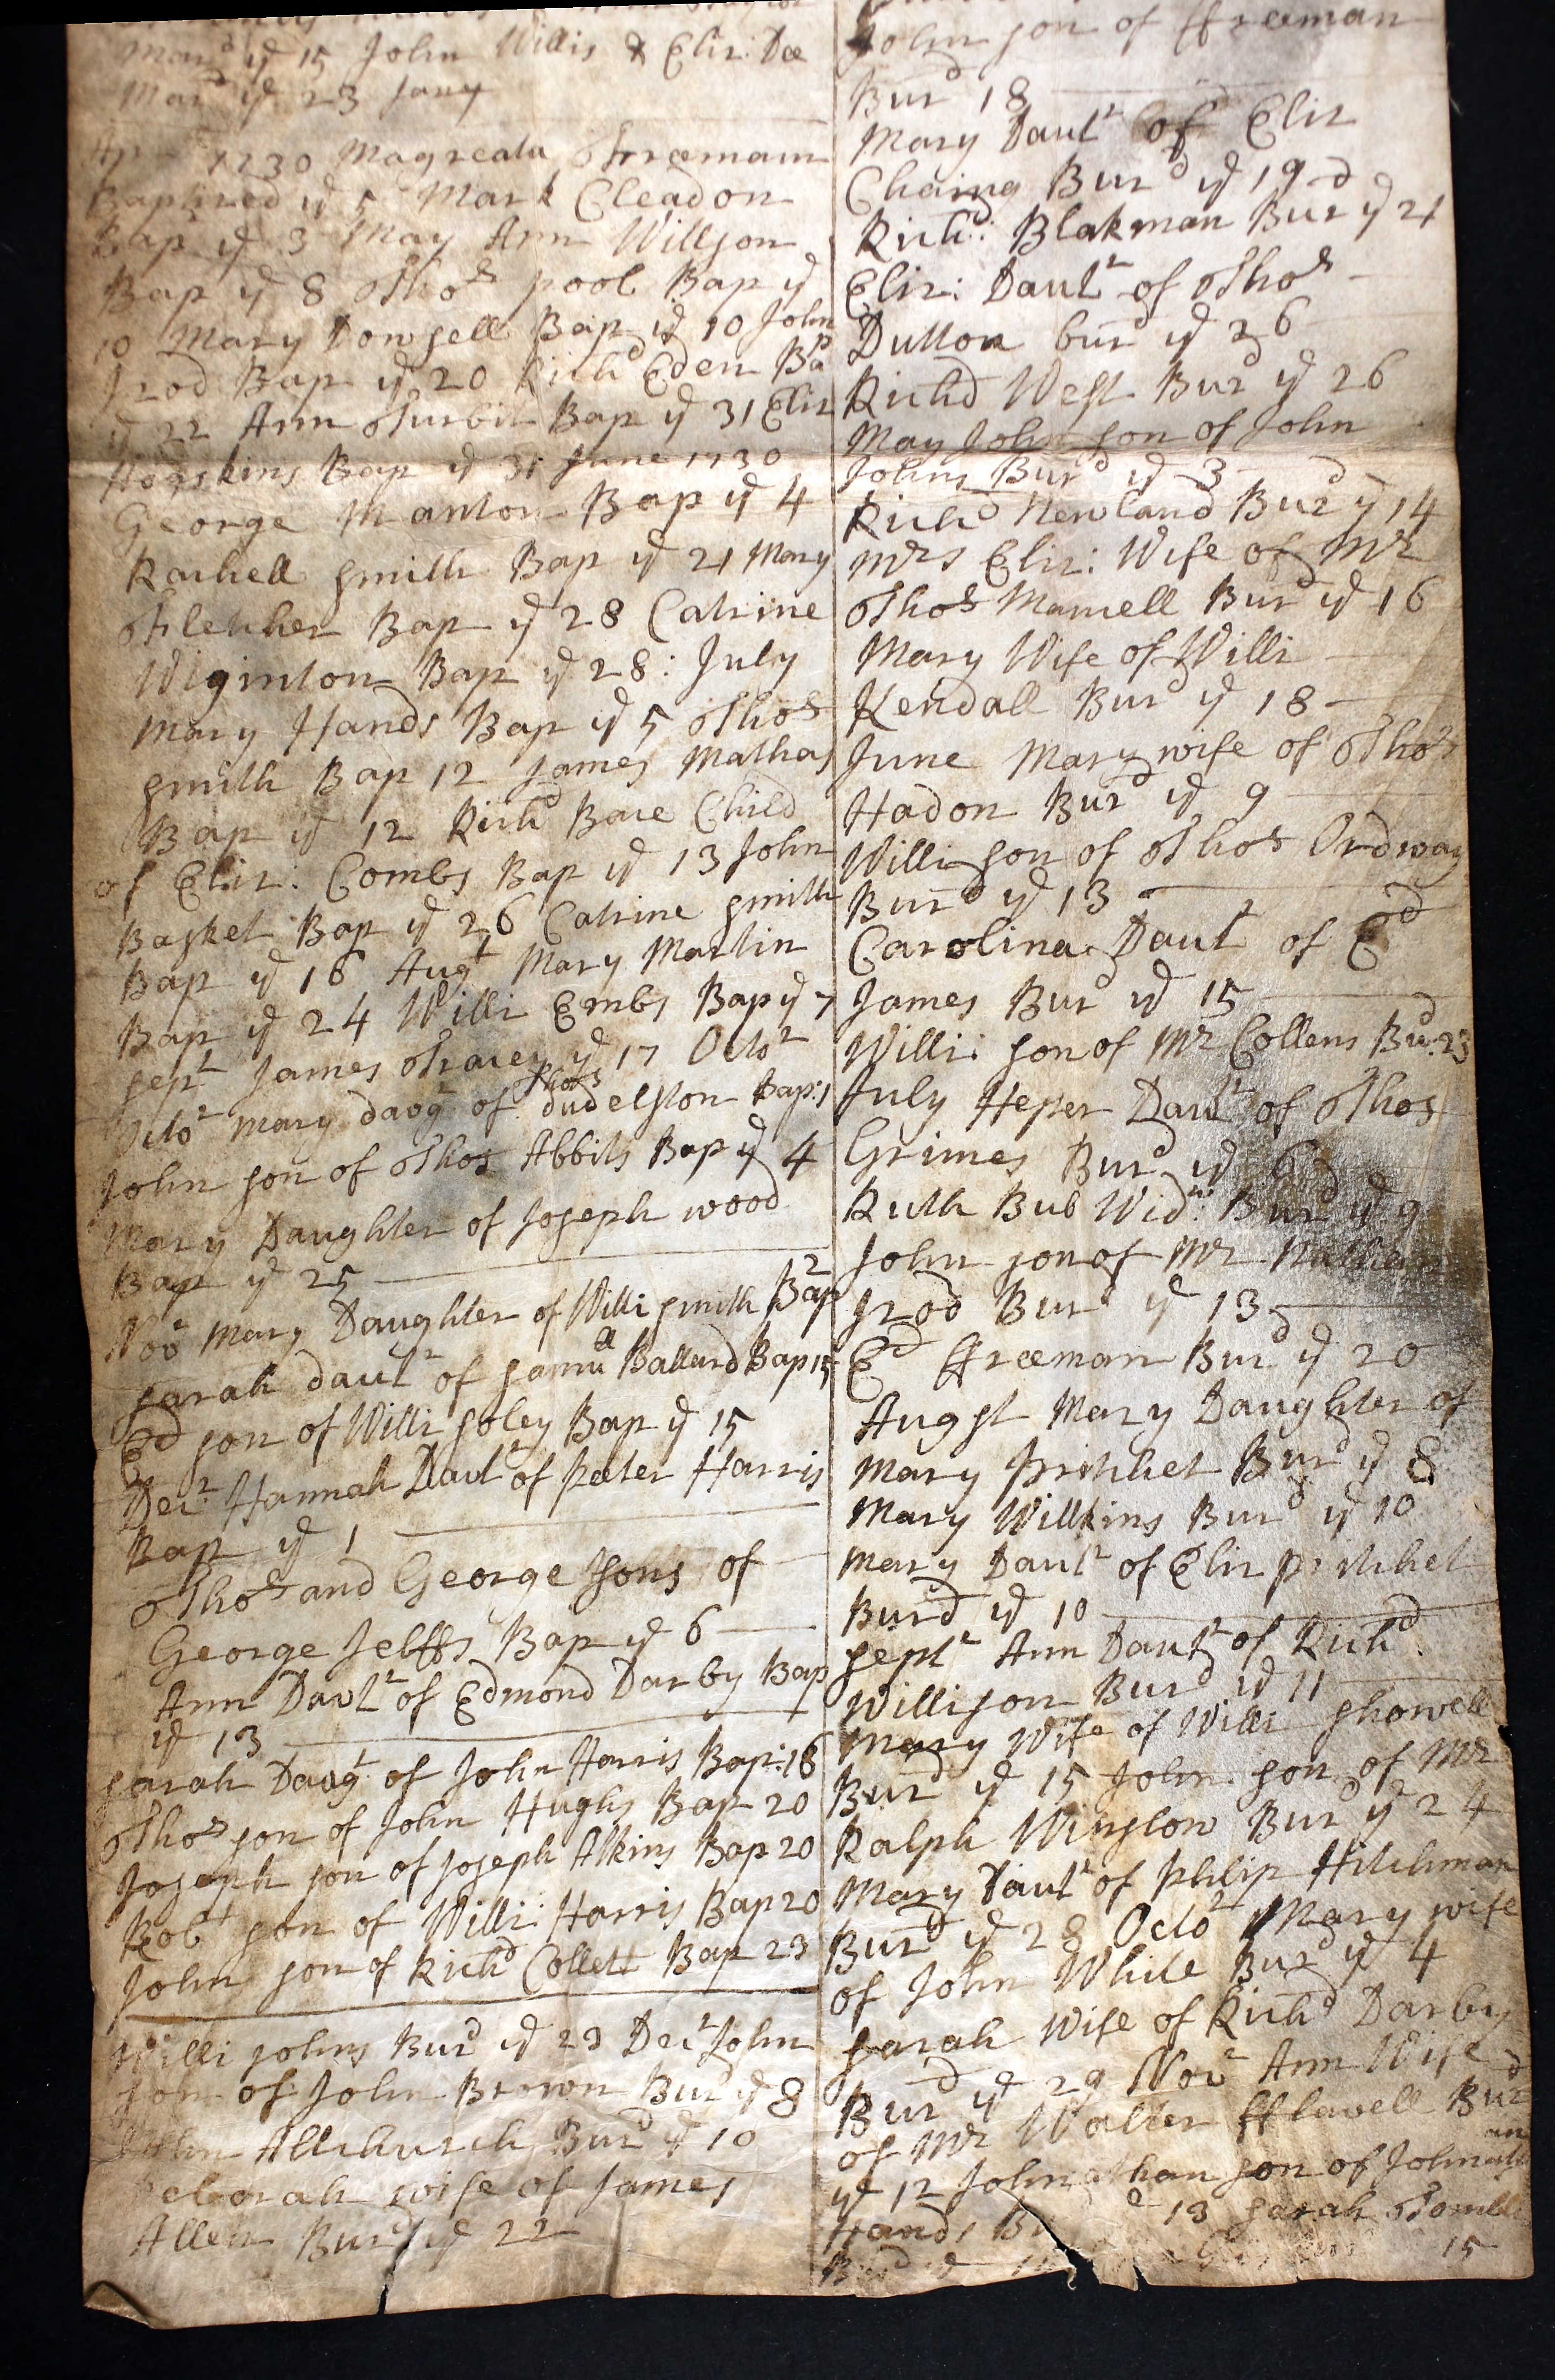 Mard ye 15 John Willis & Eliz: Dee
Mard ye 23 Jany
1730 Magreata Freemam
Baptized ye 5 Mark Cleadon
Bap ye 3 May Ann Willson
Bap ye 8 Thos pool Bap ye
10 Mary Dowsell Bap ye 10 John
Izod Bap ye 20 Richd Eden Bap
ye 22 Ann Turbit Bap ye 31 Eliz
Hogskins Bap ye 31 June 1730
George Manton Bap ye 4
Rachell Smith Bap ye 21 Mary
Fletcher Bap ye 28 Catrine
Wiginton Bap ye 28: July
Mary Hands Bap ye 5 Thos
Smith Bap 12 James Mathas
Bap ye 12 Richd Bace Child
of Eliz: Combs Bap ye 13 John
Basket Bap ye 26 Catrine Smith
Bap ye 16 Augt Mary Martin
Bap ye 24 Willi Embs Bap ye 7
Sepr James Tracey ye 17 Octor
Octor Mary daugr of Thos dudelston Bap: 1
John son of Thos Abbits Bap ye 4
Mary Daughter of Joseph wood
Bap ye 25
Nov Mary Daughter of Willi Smith Bap 2
Sarah dautr of Samll Ballard Bap 15
Ed son of Willi Soley Bap ye 15
Decr: Hannah Dautr of Peeter Harris
Bap ye 1
Thos and George Sons of
George Jelffs Bap ye 6
Ann Dautr of Edmond Darby Bap
ye 13
Sarah Daugr of John Harris Bap: 16
Thos son of John Hughs Bap 20
Joseph son of Joseph Atkins Bap 20
Robt son of Willi: Harris Bap 20
John son of Richd Collett Bap 23
Willi Johns Burd ye 23 Decr John
son of John Brown Burd ye 8
John Allchurch Burd ye 10
Deborah wife of James
Allen Burd ye 22
John son of ffreeman
Burd 18
Mary Dautr of Eliz
Burd ye 19
Richd: Blakman Burd ye 21
Eliz: Dautr of Thos
Dutton burd ye 26
Richd West Burd ye 26
May John son of John
Johns Burd ye 3
Richd Newland Burd ye 14
Mrs Eliz: Wife of Mr
Thos Mamell Burd ye 16
Mary Wife of Willi
Kendall Burd ye 18
June Mary wife of Thos
Hadon Burd ye 9
Willi son of Thos Ordway
Burd ye 13
Carolina Dautr of Ed
James Burd ye 15
Willi: son of Mr Collens Bud: 23
July Hester Dautr of Thos
Grimes Burd ye 6
Ruth Bub Widw: Burd ye 9
John son of Mr
Izod Burd ye 13
Ed ffreeman Burd ye 20
Augst Mary Daughter of
Mary Pritchet Burd ye 8
Mary Willkins Burd ye 10
Mary Dautr of Eliz Pritchet
Burd ye 10
Septr Ann Dautr of Richd
Willison Burd ye 11
Mary Wife of Willi Showell
Burd ye 15 John son of Mr
Ralph Winslow Burd ye 24
Mary Dautr of Philip Hitchman
Burd ye 28 Octor Mary wife
of John White Burd ye 4
Sarah Wife of Richd Darby
Burd ye 29 Novr Ann Wife
of Mr Walter fflavell Burd
ye 12 Johnathan son of Johnathan
Hands 13 Sarah
Burd ye 15